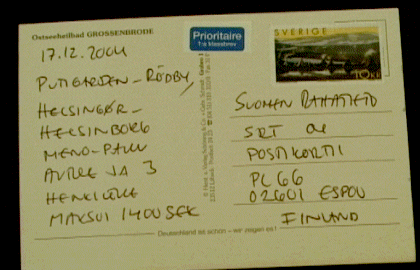 Ostseeheilbad GROSSENBRODE
17.12.2004
PUTGARDEN - RÖDBY,
HELSINGØR -
HELSINBORG
MENO-PALUU
AUTOLLE JA 3
HENKILÖLLE
MAKSOI 1400 SEK
Prioritaire
1:a klassbrev
SVERIGE
10 KR
SUOMEN RAHATIETO
SRT OY
POSTIKORTTI
PL 66
02601 ESPOO
FINLAND
Deutschland ist schön – wir zeigen es!